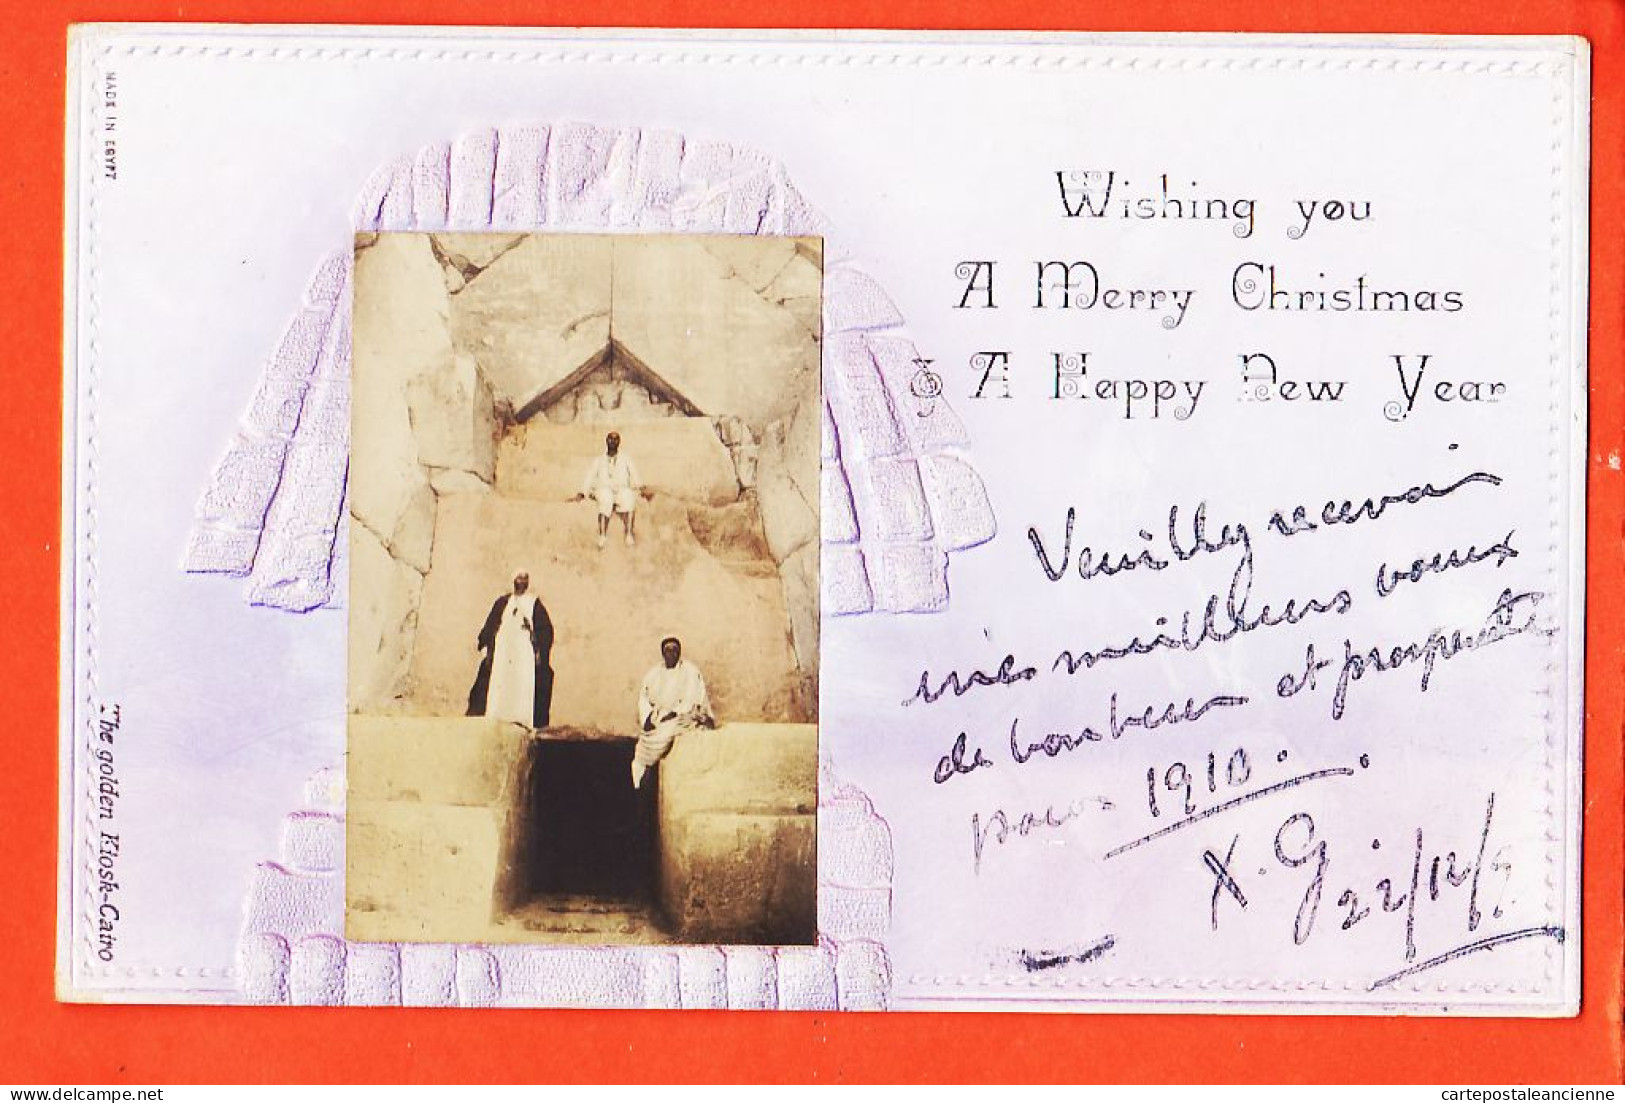 MADE IN EGYPT
The golden Kiosk-Cairo
Wishing you
A Merry Christmas
& A Happy New Year
Veuillez recevoir
mes meilleurs voeux
de bonheur et prospérité
pour 1910.
X. G. 22/12/9
cartepostaleancienne